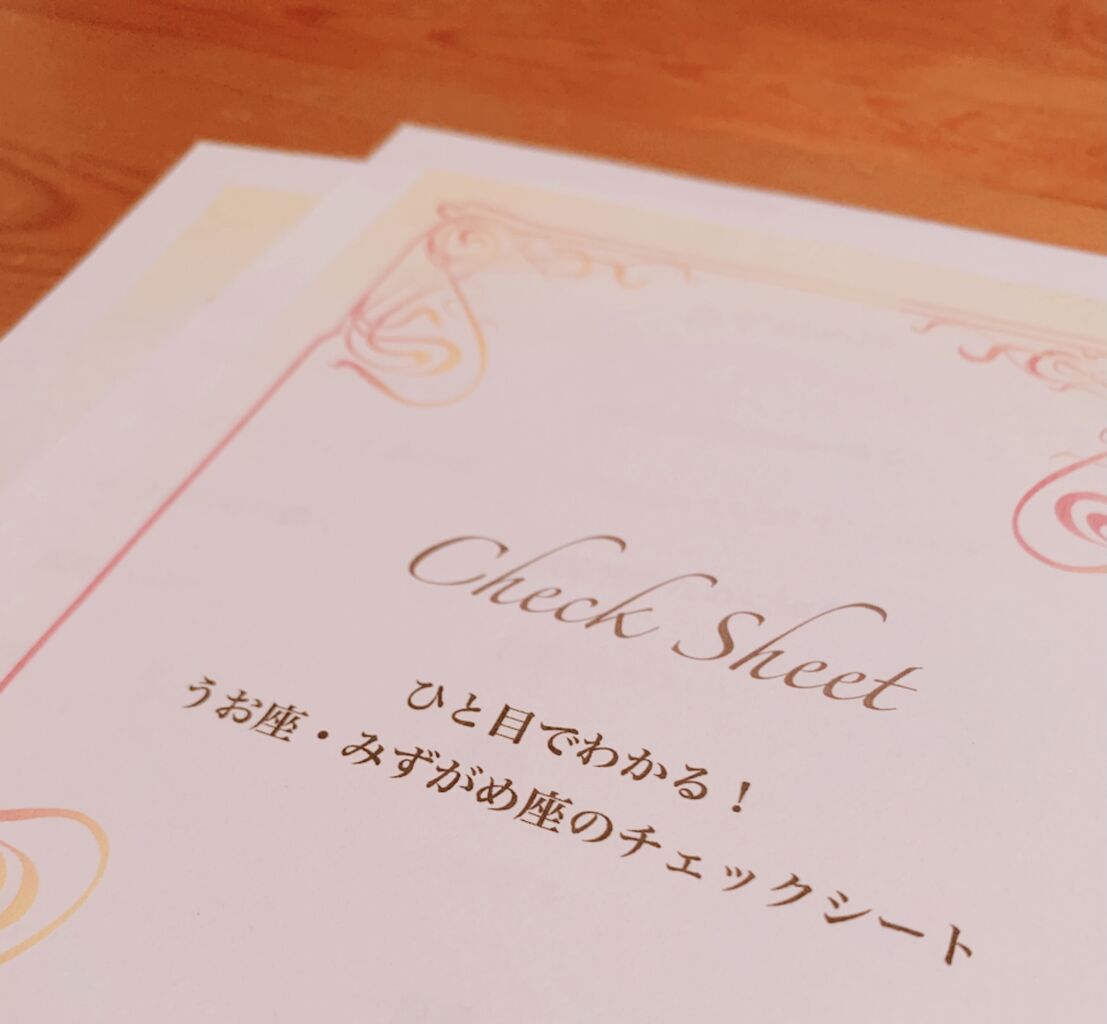 Check Sheet
ひと目でわかる！
うお座・みずがめ座のチェックシート